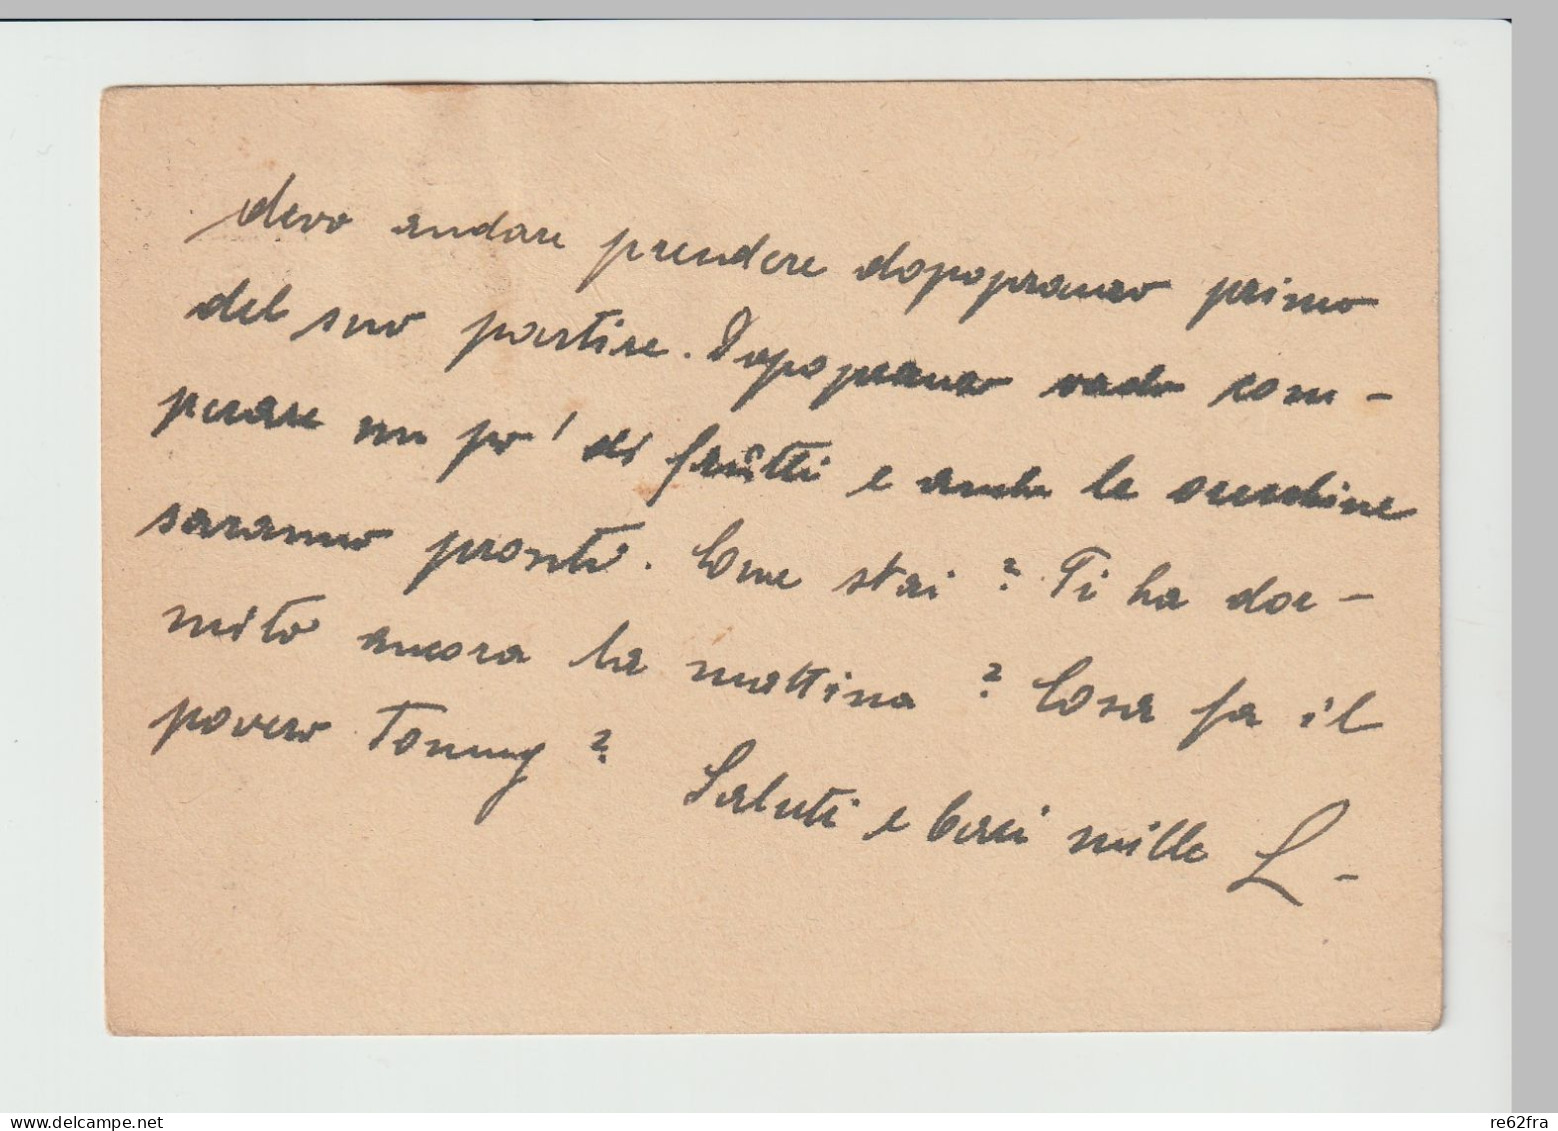 devo andare prendere dopopranzo primo
del suo partire. Dopopranzo vado com-
perare un po' di frutti e anche le
saranno pronti. Come stai? Ti ha dor-
mito ancora la mattina? Cosa fa il
povero Tommy? Saluti e baci mille L-
www.delcampe.net
re62fra